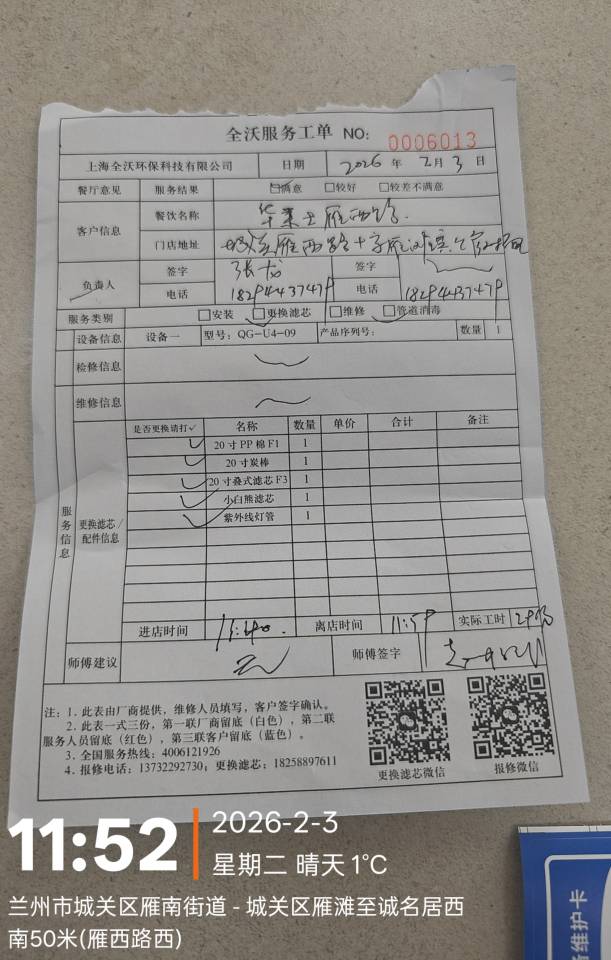 全沃服务工单 NO: 0006013
上海全沃环保科技有限公司 日期 2026 年 2 月 3 日
餐厅意见 服务结果 ☑满意 □较好 □较差不满意
客户信息 餐饮名称 华莱士雁西路
门店地址 雁西路十字雁滩
负责人 签字 张龙 签字
电话 18294437479 电话 18294437479
服务类别 □安装 ☑更换滤芯 □维修 ☑管道消毒
设备信息 设备一 型号: QG-U4-09 产品序列号: 数量 1
检修信息
维修信息
服务信息 更换滤芯/配件信息
是否更换请打✓ 名称 数量 单价 合计 备注
✓ 20 寸 PP 棉 F1 1
✓ 20 寸炭棒 1
✓ 20 寸叠式滤芯 F3 1
✓ 小白熊滤芯 1
✓ 紫外线灯管 1
进店时间 11:40. 离店时间 11:59 实际工时
师傅建议 无 师傅签字
注: 1. 此表由厂商提供, 维修人员填写, 客户签字确认。
2. 此表一式三份, 第一联厂商留底 (白色), 第二联
服务人员留底 (红色), 第三联客户留底 (蓝色)。
3. 全国服务热线: 4006121926
4. 报修电话: 13732292730; 更换滤芯: 18258897611
更换滤芯微信 报修微信
11:52
2026-2-3
星期二 晴天 1℃
兰州市城关区雁南街道 - 城关区雁滩至诚名居西
南50米(雁西路西)
维护卡